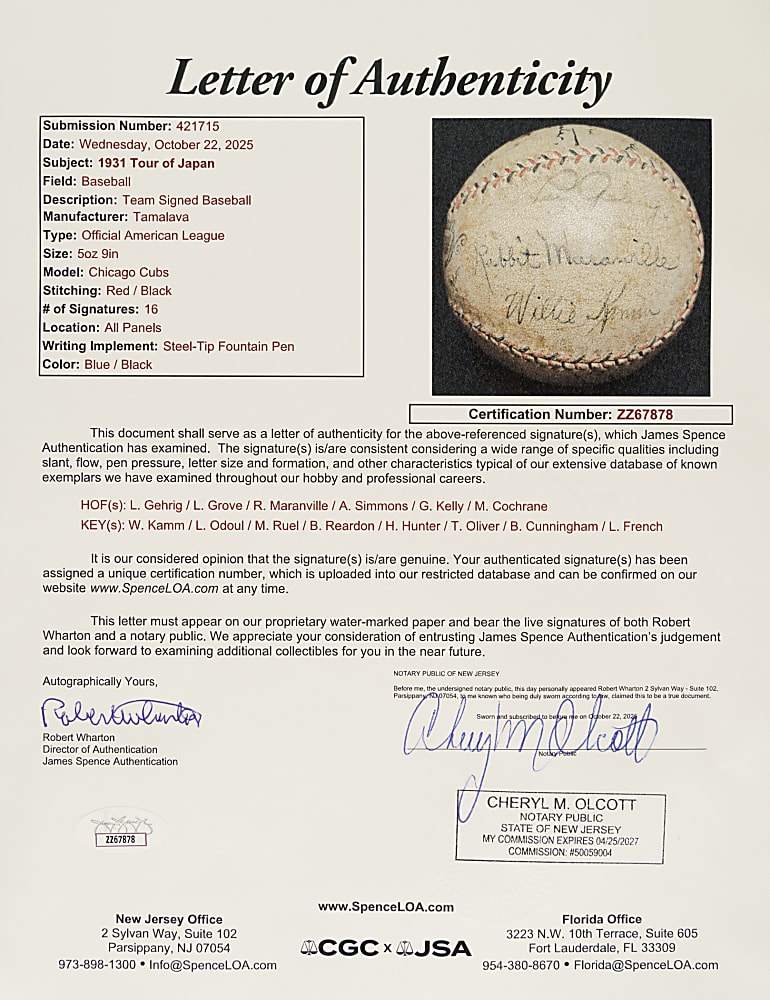 Letter of Authenticity
Submission Number: 421715
Date: Wednesday, October 22, 2025
Subject: 1931 Tour of Japan
Field: Baseball
Description: Team Signed Baseball
Manufacturer: Tamalava
Type: Official American League
Size: 5oz 9in
Model: Chicago Cubs
Stitching: Red / Black
# of Signatures: 16
Location: All Panels
Writing Implement: Steel-Tip Fountain Pen
Color: Blue / Black
Rabbit Maranville
Willie Kamm
Certification Number: ZZ67878
This document shall serve as a letter of authenticity for the above-referenced signature(s), which James Spence
Authentication has examined. The signature(s) is/are consistent considering a wide range of specific qualities including
slant, flow, pen pressure, letter size and formation, and other characteristics typical of our extensive database of known
exemplars we have examined throughout our hobby and professional careers.
HOF(s): L. Gehrig / L. Grove / R. Maranville / A. Simmons / G. Kelly / M. Cochrane
KEY(s): W. Kamm / L. Odoul / M. Ruel / B. Reardon / H. Hunter / T. Oliver / B. Cunningham / L. French
It is our considered opinion that the signature(s) is/are genuine. Your authenticated signature(s) has been
assigned a unique certification number, which is uploaded into our restricted database and can be confirmed on our
website www.SpenceLOA.com at any time.
This letter must appear on our proprietary water-marked paper and bear the live signatures of both Robert
Wharton and a notary public. We appreciate your consideration of entrusting James Spence Authentication's judgement
and look forward to examining additional collectibles for you in the near future.
Autographically Yours,
Robert Wharton
Robert Wharton
Director of Authentication
James Spence Authentication
NOTARY PUBLIC OF NEW JERSEY
Before me, the undersigned notary public, this day personally appeared Robert Wharton 2 Sylvan Way - Suite 102,
Parsippany, NJ 07054, to me known who being duly sworn according to law, claimed this to be a true document.
Sworn and subscribed to before me on October 22, 2025
Cheryl M Olcott
Notary Public
CHERYL M. OLCOTT
NOTARY PUBLIC
STATE OF NEW JERSEY
MY COMMISSION EXPIRES 04/25/2027
COMMISSION: #50059004
ZZ67878
www.SpenceLOA.com
New Jersey Office
2 Sylvan Way, Suite 102
Parsippany, NJ 07054
973-898-1300 • Info@SpenceLOA.com
CGC x JSA
Florida Office
3223 N.W. 10th Terrace, Suite 605
Fort Lauderdale, FL 33309
954-380-8670 • Florida@SpenceLOA.com